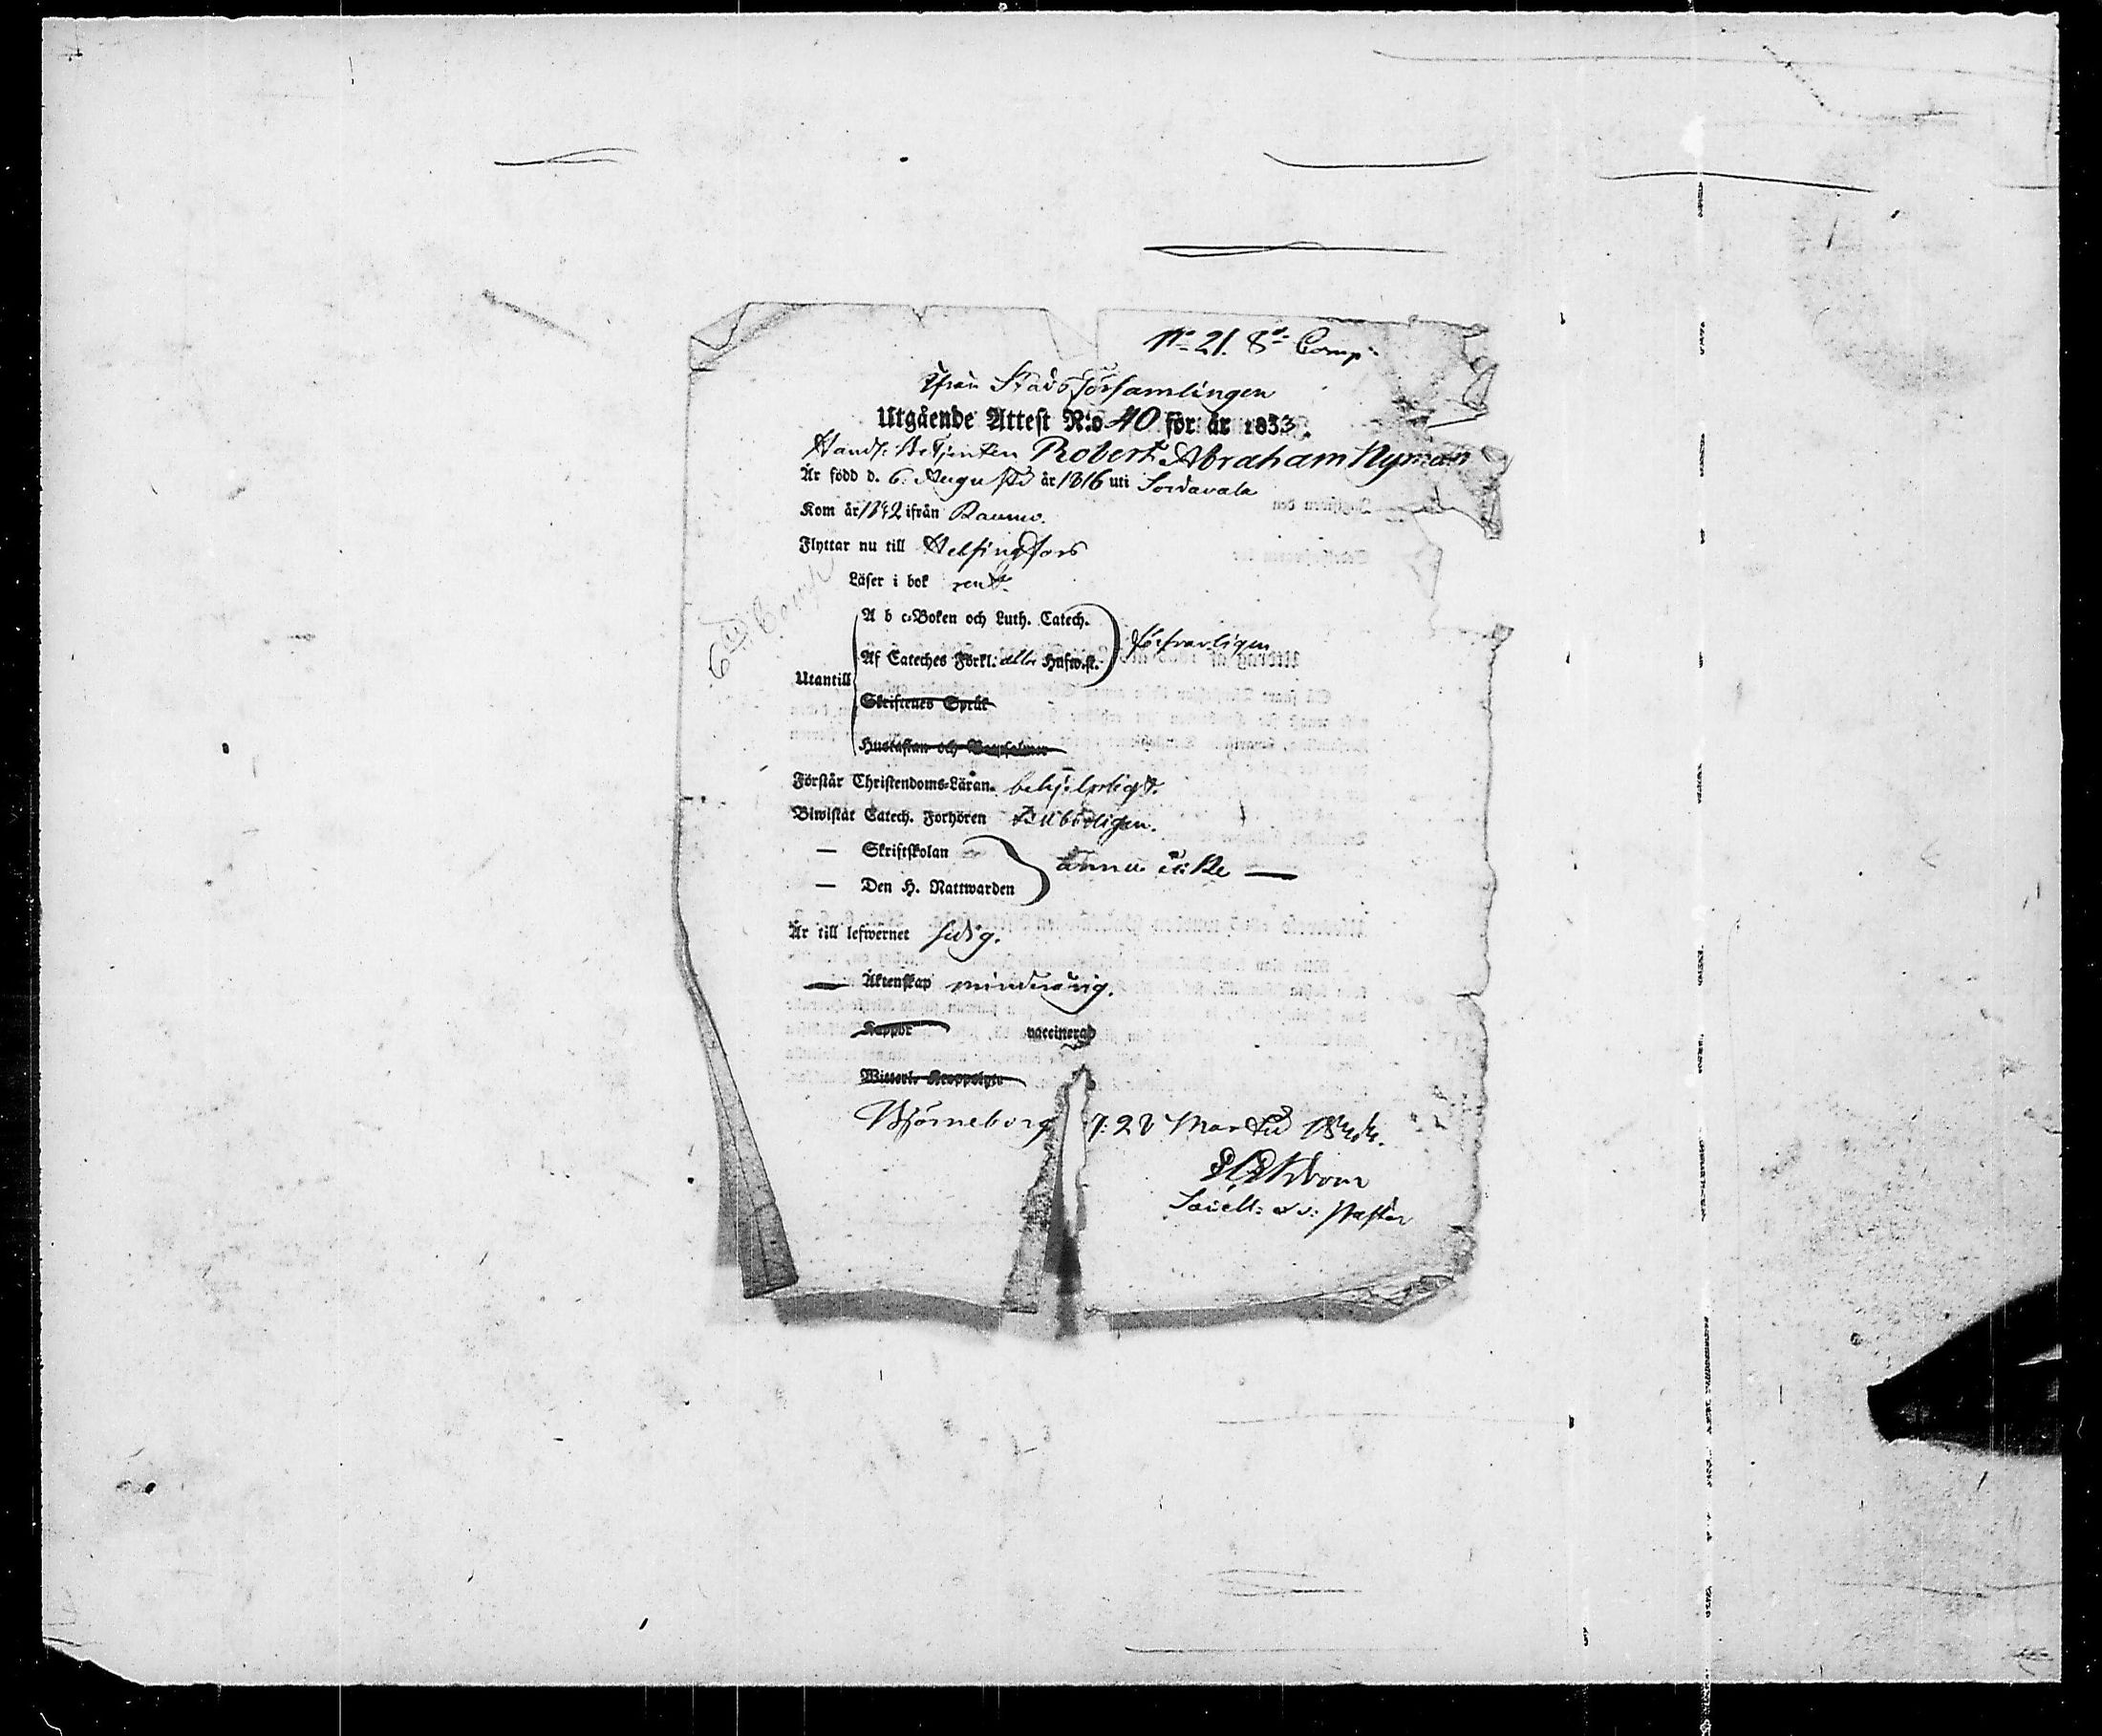 No 21. 8de Comp:
Ifrån Stads församlingen
Utgående Attest N:o 40 för år 1833.
Handl: Betjenten Robert Abraham Nyman
Är född d. 6 Augusti år 1816 uti Sordavala
Kom år 1842 ifrån Raumo.
Flyttar nu till Helsingfors
Läser i bok rent.
6te Comp
A b c-Boken och Luth. Catech.
försvarligen
Af Cateches Förkl: eller Husw.st.
Utantill
Skriftenes Språk
Hustaflan och
Förstår Christendoms-Läran. behjelpligt.
Biwistat Catech. Forhören
— Skriftskolan
ännu icke —
— Den H. Nattwarden
Är till lefwernet sedig.
— Äktenskap minderårig.
Koppor vaccinerad
Witterl. Kroppslyte
Björneborg d: 28 Martii 1844.
Sacell: v: Pastor